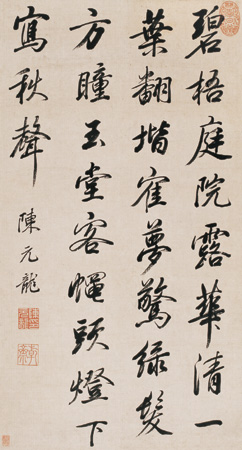 碧梧庭院露華清一
葉翻堦隺夢驚綠髮
方瞳玉堂客蠅頭燈下
寫秋聲
陳元龍